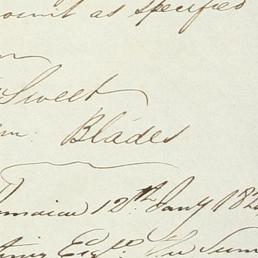 ount as specified
Sweet
m. Blades
amaica 12th Jany 182
Esqr. The Sum